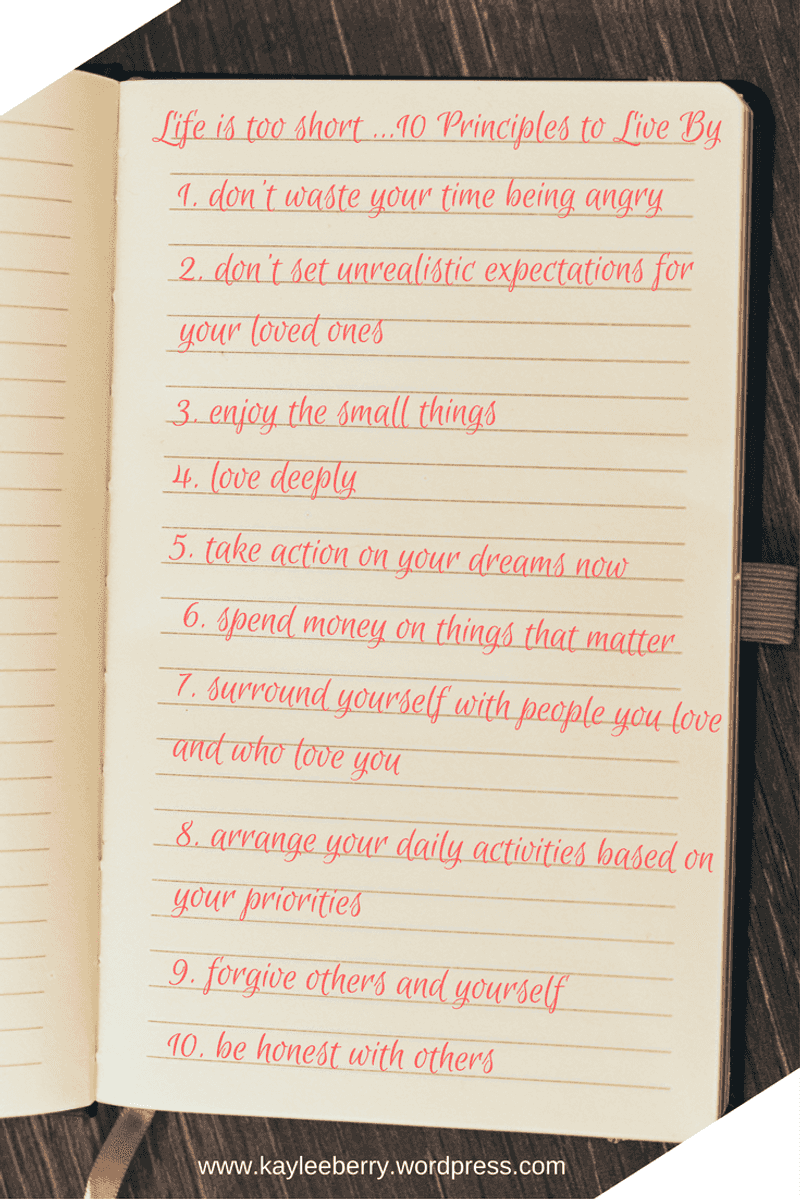 Life is too short ...10 Principles to Live By
1. don't waste your time being angry
2. don't set unrealistic expectations for
your loved ones
3. enjoy the small things
4. love deeply
5. take action on your dreams now
6. spend money on things that matter
7. surround yourself with people you love
and who love you
8. arrange your daily activities based on
your priorities
9. forgive others and yourself
10. be honest with others
www.kayleeberry.wordpress.com